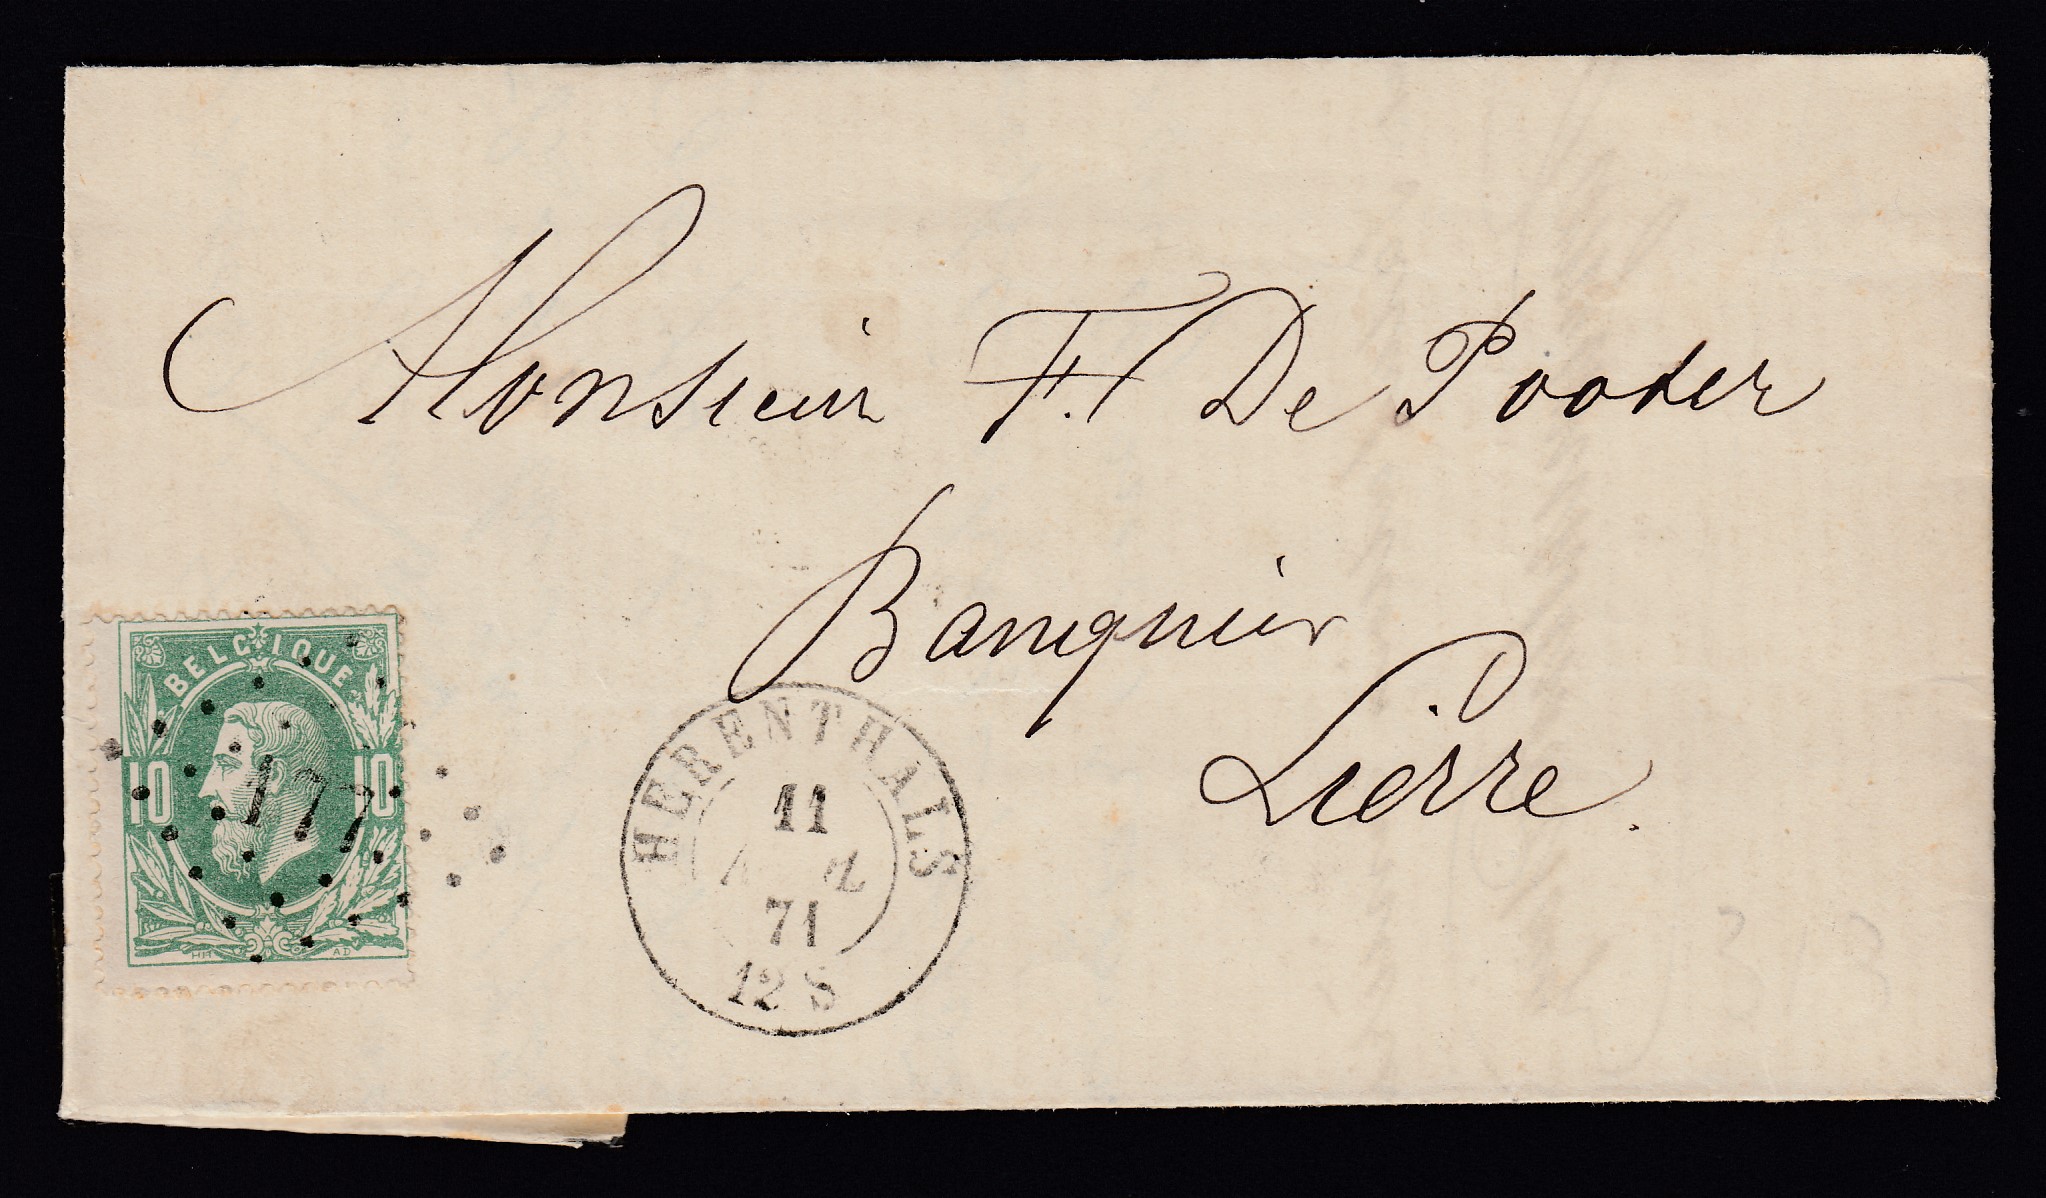 Monsieur F. De Pooter
Banquier
Lierre.
BELGIQUE
10 10
177
HIT AD
HERENTHALS
11
71
12 S